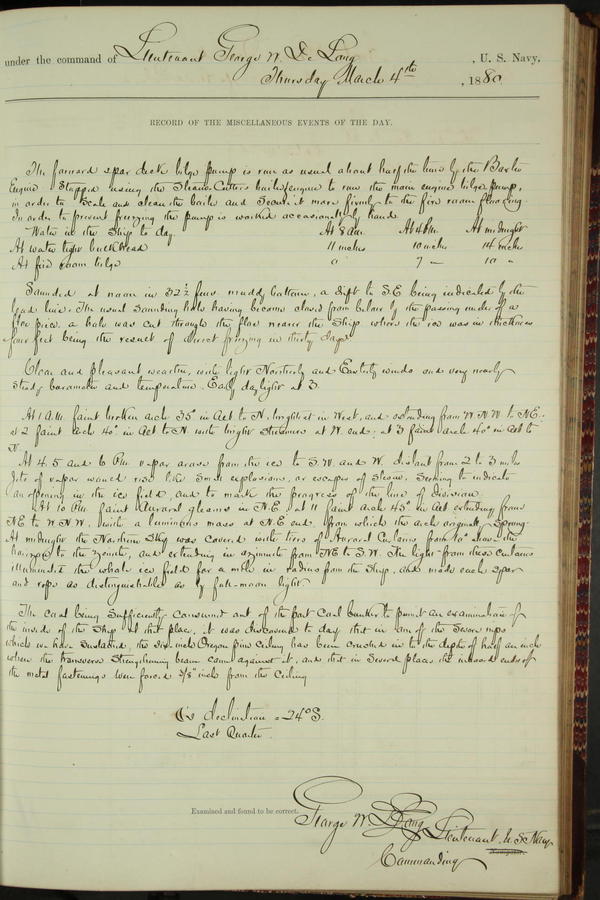 under the command of Lieutenant George W. De Long, U. S. Navy.
Thursday March 4th, 1880
RECORD OF THE MISCELLANEOUS EVENTS OF THE DAY.
The forward spar deck bilge pump is run as usual about half the time by the Baxter
Engine. Stopped using the Steam Cutter's boiler & engine to run the main engine bilge pump,
in order to scale and clean the boiler and secure it more firmly to the fire room flooring
In order to prevent freezing the pump is worked occasionally by hand.
Water in the Ship to day. At 8 AM. At 4 PM. At midnight
At water tight bulkhead 11 inches 10 inches 14 inches
At fire room bilge " 7 " 10 "
Sounded at noon in 32½ fms muddy bottom, a drift to S.E. being indicated by the
lead line. The usual sounding hole having become closed from below by the passing under of a
floe piece, a hole was cut through the floe nearer the Ship where the ice was in thickness
four feet being the result of direct freezing in thirty days.
Clear and pleasant weather, with light Northerly and Easterly winds and very nearly
steady barometer and temperature. Early daylight at 3.
At 1 A.M. faint broken arch 35° in Alt to N. brightest in West, and extending from W.N.W. to N.E.
at 2 faint arch 40° in Alt to N. with bright streamers at W. end; at 3 faint arch 40° in Alt to
N.
At 4. 5 and 6 P.M. vapor arose from the ice to S.W. and W. distant from 2 to 3 miles
Jets of vapor would rise like small explosions, or escapes of steam, seeming to indicate
an opening in the ice field, and to mark the progress of the line of division.
At 10 P.M. faint Auroral gleams in N.E. at 11 faint arch 45° in Alt extending from
NE to W N.W. with a luminous mass at N.E. end from which the arch originally sprung.
At midnight the Northern Sky was covered with tiers of Auroral Curtains from 10° above the
horizon to the zenith, and extending in azimuth from NE to S.W. The light from these curtains
illuminated the whole ice field for a mile in radius from the Ship, and made each spar
and rope as distinguishable as by full-moon light.
The coal being sufficiently consumed out of the port coal bunker to permit an examination of
the inside of the Ship at that place, it was discovered to day that in one of the severe nips
which we have sustained, the six-inch Oregon pine ceiling has been crushed in to the depth of half an inch
where the transverse strengthening beam came against it, and that in several places the inboard ends of
the metal fastenings were forced 3/8" inch from the ceiling
☾'s declination = 24° S.
Last Quarter.
Examined and found to be correct.
George W. De Long Lieutenant U.S. Navy
Navigator.
Commanding